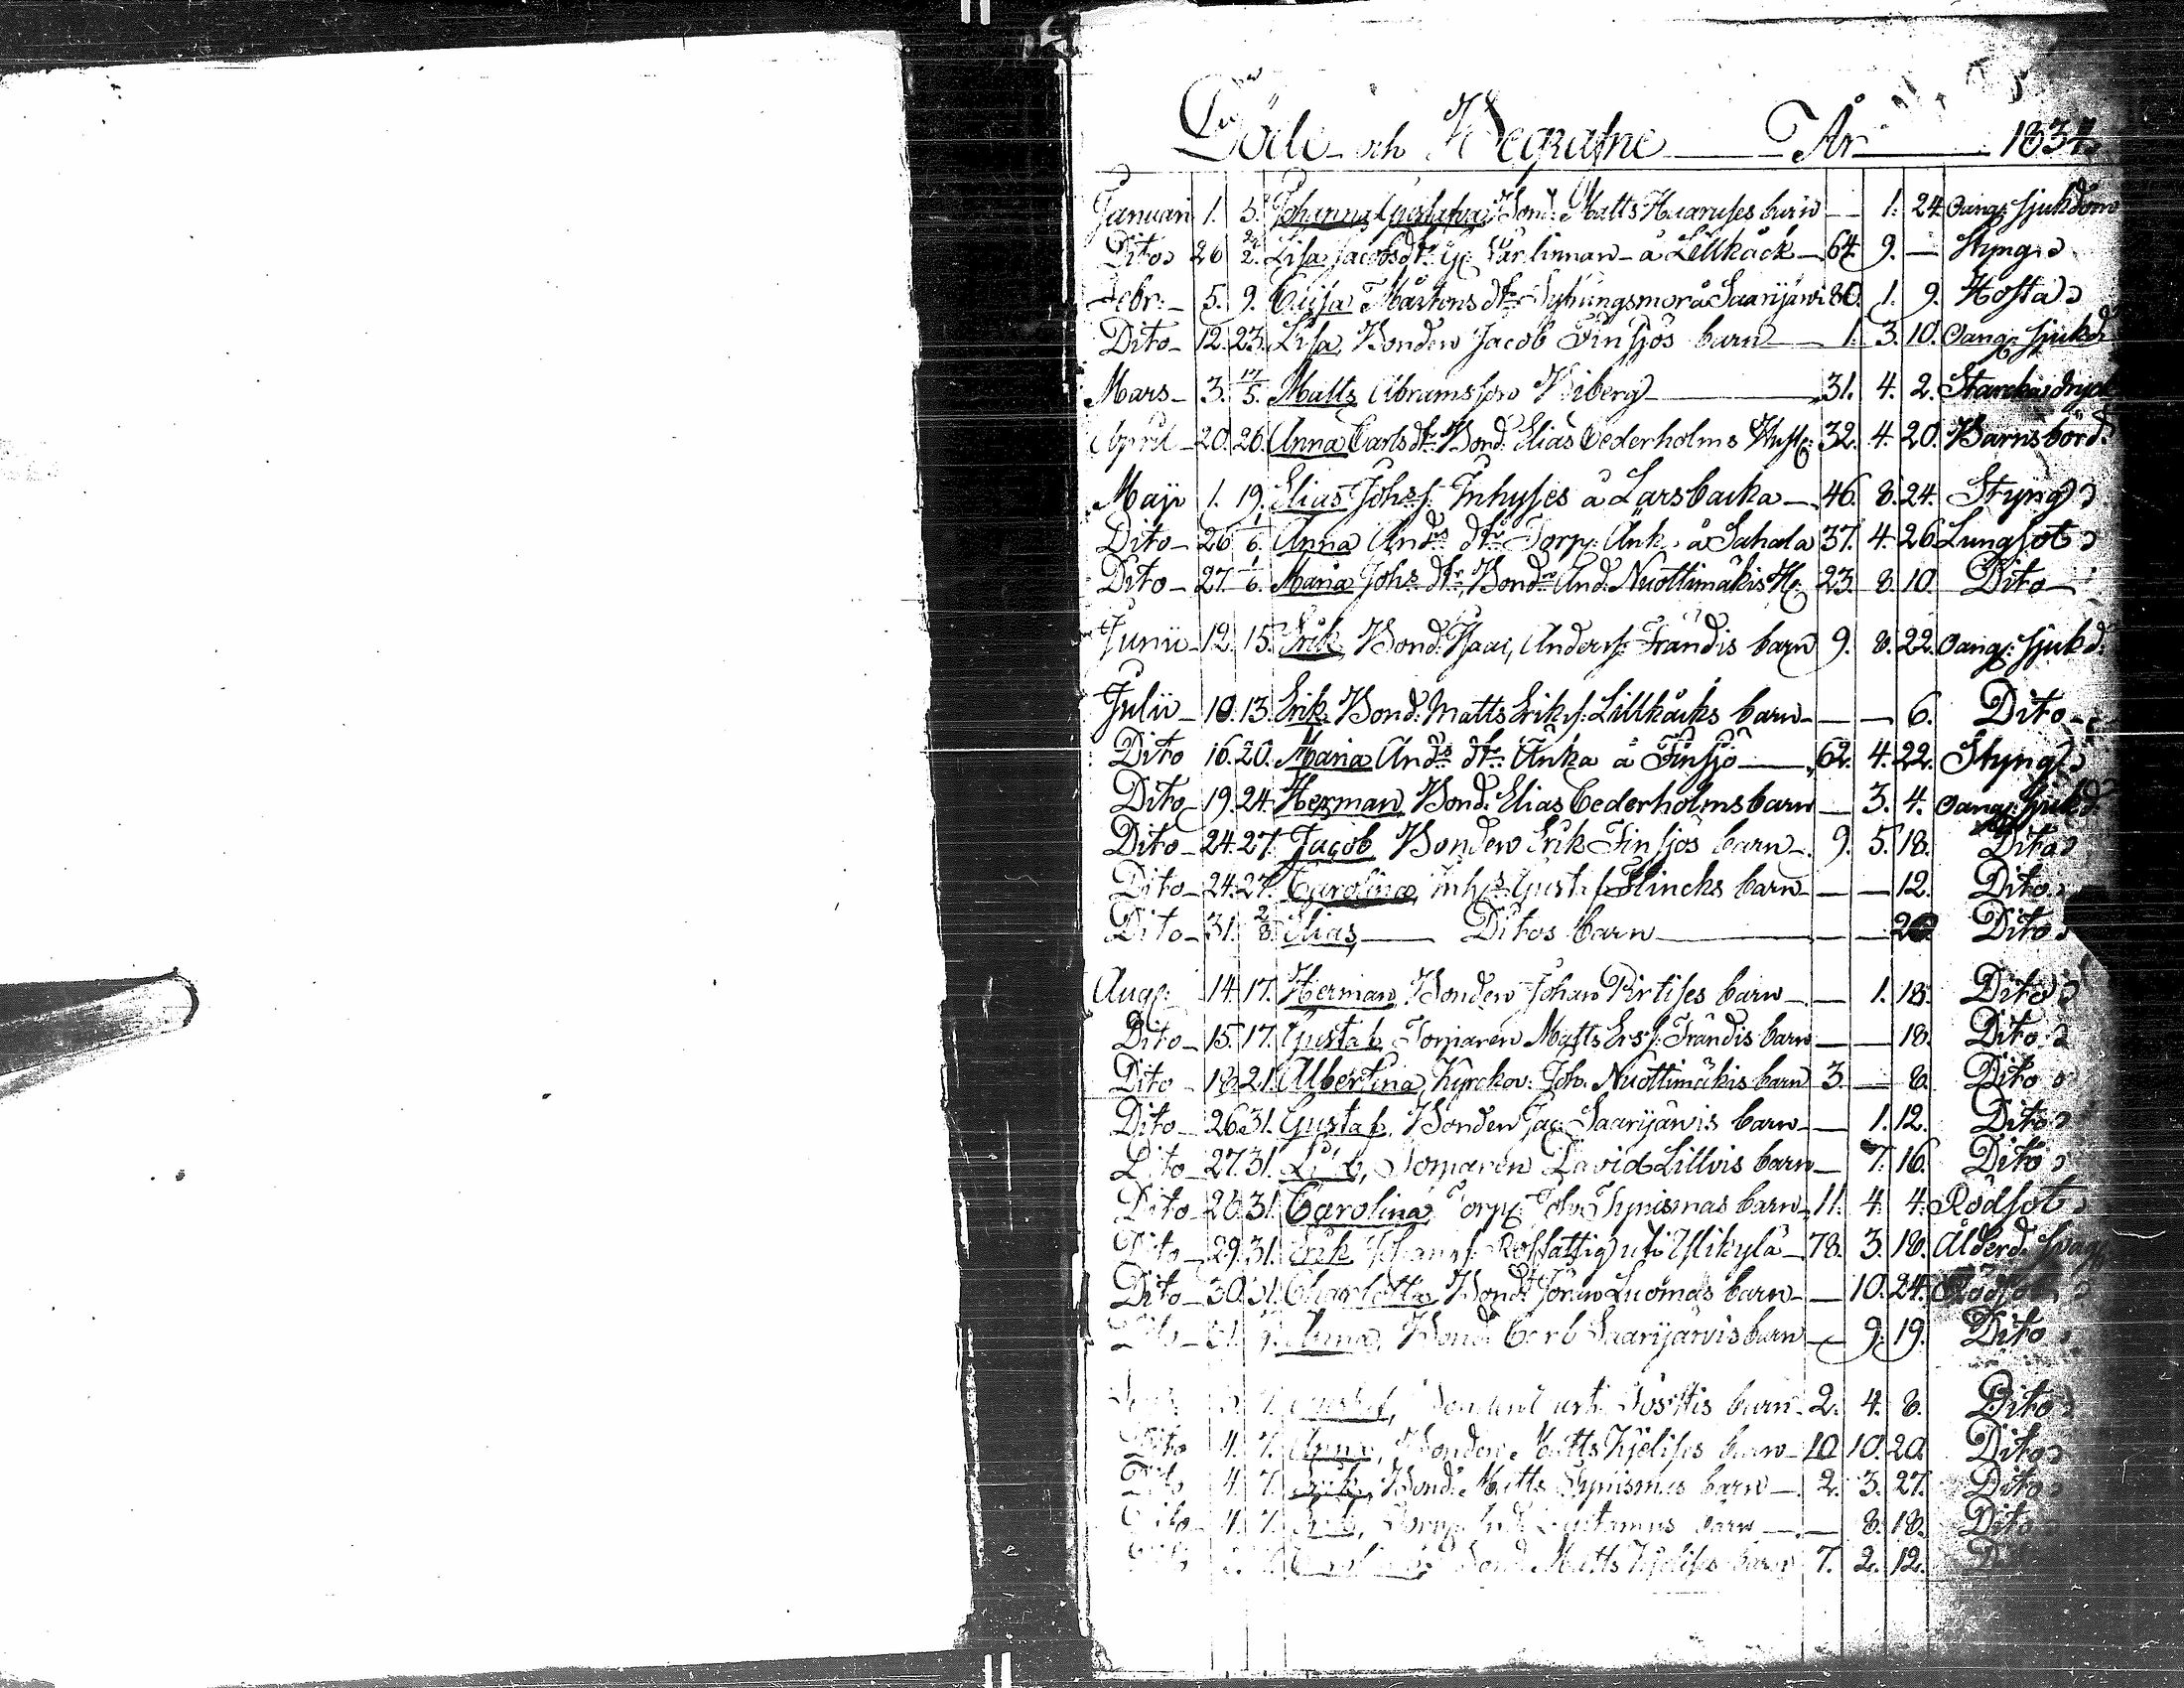 Döde och Begrafne År 1834.
Januari 1. 5. Johanna Gustafva Bond. Matts Haaruses barn — 1. 24 Oang: sjukdom
Dito 26 2/2. Lisa Jacobsdtr Gl. Pärlinnan å Lillkåck — 64 9. — Styng
Febr: 5. 9. Caisa Mårtens dtr Sytningsmor å Saarijärvi 80. 1. 9. Hosta
Dito 12. 23. Lisa, Bonden Jacob Finsjös barn — 1. 3. 10. Oang: sjukd
Mars 3. 17/5. Matts Abramsson Wiberg — 31. 4. 2. Starcka dryck
April 20. 26. Anna Carls dtr Bond. Elias Cederholms Hust: 32. 4. 20. Barnsbörd.
Maji 1. 19. Elias Johs s. Inhyses å Larsbacka — 46. 8. 24. Styng
Dito 26 1/6. Anna Ands dtr Torp. Änk. å Sahala 37. 4. 26 Lungsot
Dito 27. 1/6. Maria Johs dtr, Bond. And. Nuottimäkis H. 23. 8. 10. Dito
Junii 12. 15. Erik, Bond. Isaac Anderss. Frändis barn 9. 8. 22. Oang: sjukd:
Julii 10. 13. Erik, Bond. Matts Eriks. Lillkåcks barn — — 6. Dito
Dito 16. 20. Maria Ands dtr Änka å Finsjö — 62. 4. 22. Styng
Dito 19. 24. Herman Bond. Elias Cederholms barn — 3. 4. Oang: sjukd
Dito 24. 27. Jacob Bonden Erik Finsjös barn — 9. 5. 18. Dito
Dito 24. 27. Carolina, Inhs Gust. Flincks barn — — 12. Dito
Dito 31. 2/8. Elias, — Ditos barn — — 20 Dito
Aug: 14. 17. Herman, Bonden Johan Pirtises barn — 1. 18. Dito
Dito 15. 17. Gustaf, Torparen Matts Ers s. Frändis barn — — 18. Dito
Dito 18. 21. Albertina, Kyrkov. Joh. Nuottimäkis barn 3. — 8. Dito
Dito 26. 31. Gustaf, Bonden Jac. Saarijärvis barn — 1. 12. Dito
Dito 27. 31. Torparen David Lillvis barn — 7. 16. Dito
Dito 28. 31. Carolina, Torp. Joh. Tynismas barn 11. 4. 4. Rödsot
Dito 29. 31. Erik Johans s. Rotfattig uti Ylikylä 78. 3. 18. Ålderd. svag
Dito 30. 31. Charlotta, Bond. Johan Luomas barn — 10. 24. Rödsot
Dito 31. 7. Anna, Bond. Carl Saarijärvis barn — 9. 19. Dito
7. Gustaf, Bonden barn 2. 4. 8. Dito
Dito 4. 7. Anna, Bonden Matts Kjelises barn 10 10. 20. Dito
Dito 4. 7. Bond. Matts Tynismas barn — 2. 3. 27. Dito
Dito 4. 7. Torp. barn — 8. 18. Dito
Dito Bond. Matts Kjelises barn 7. 2. 12.